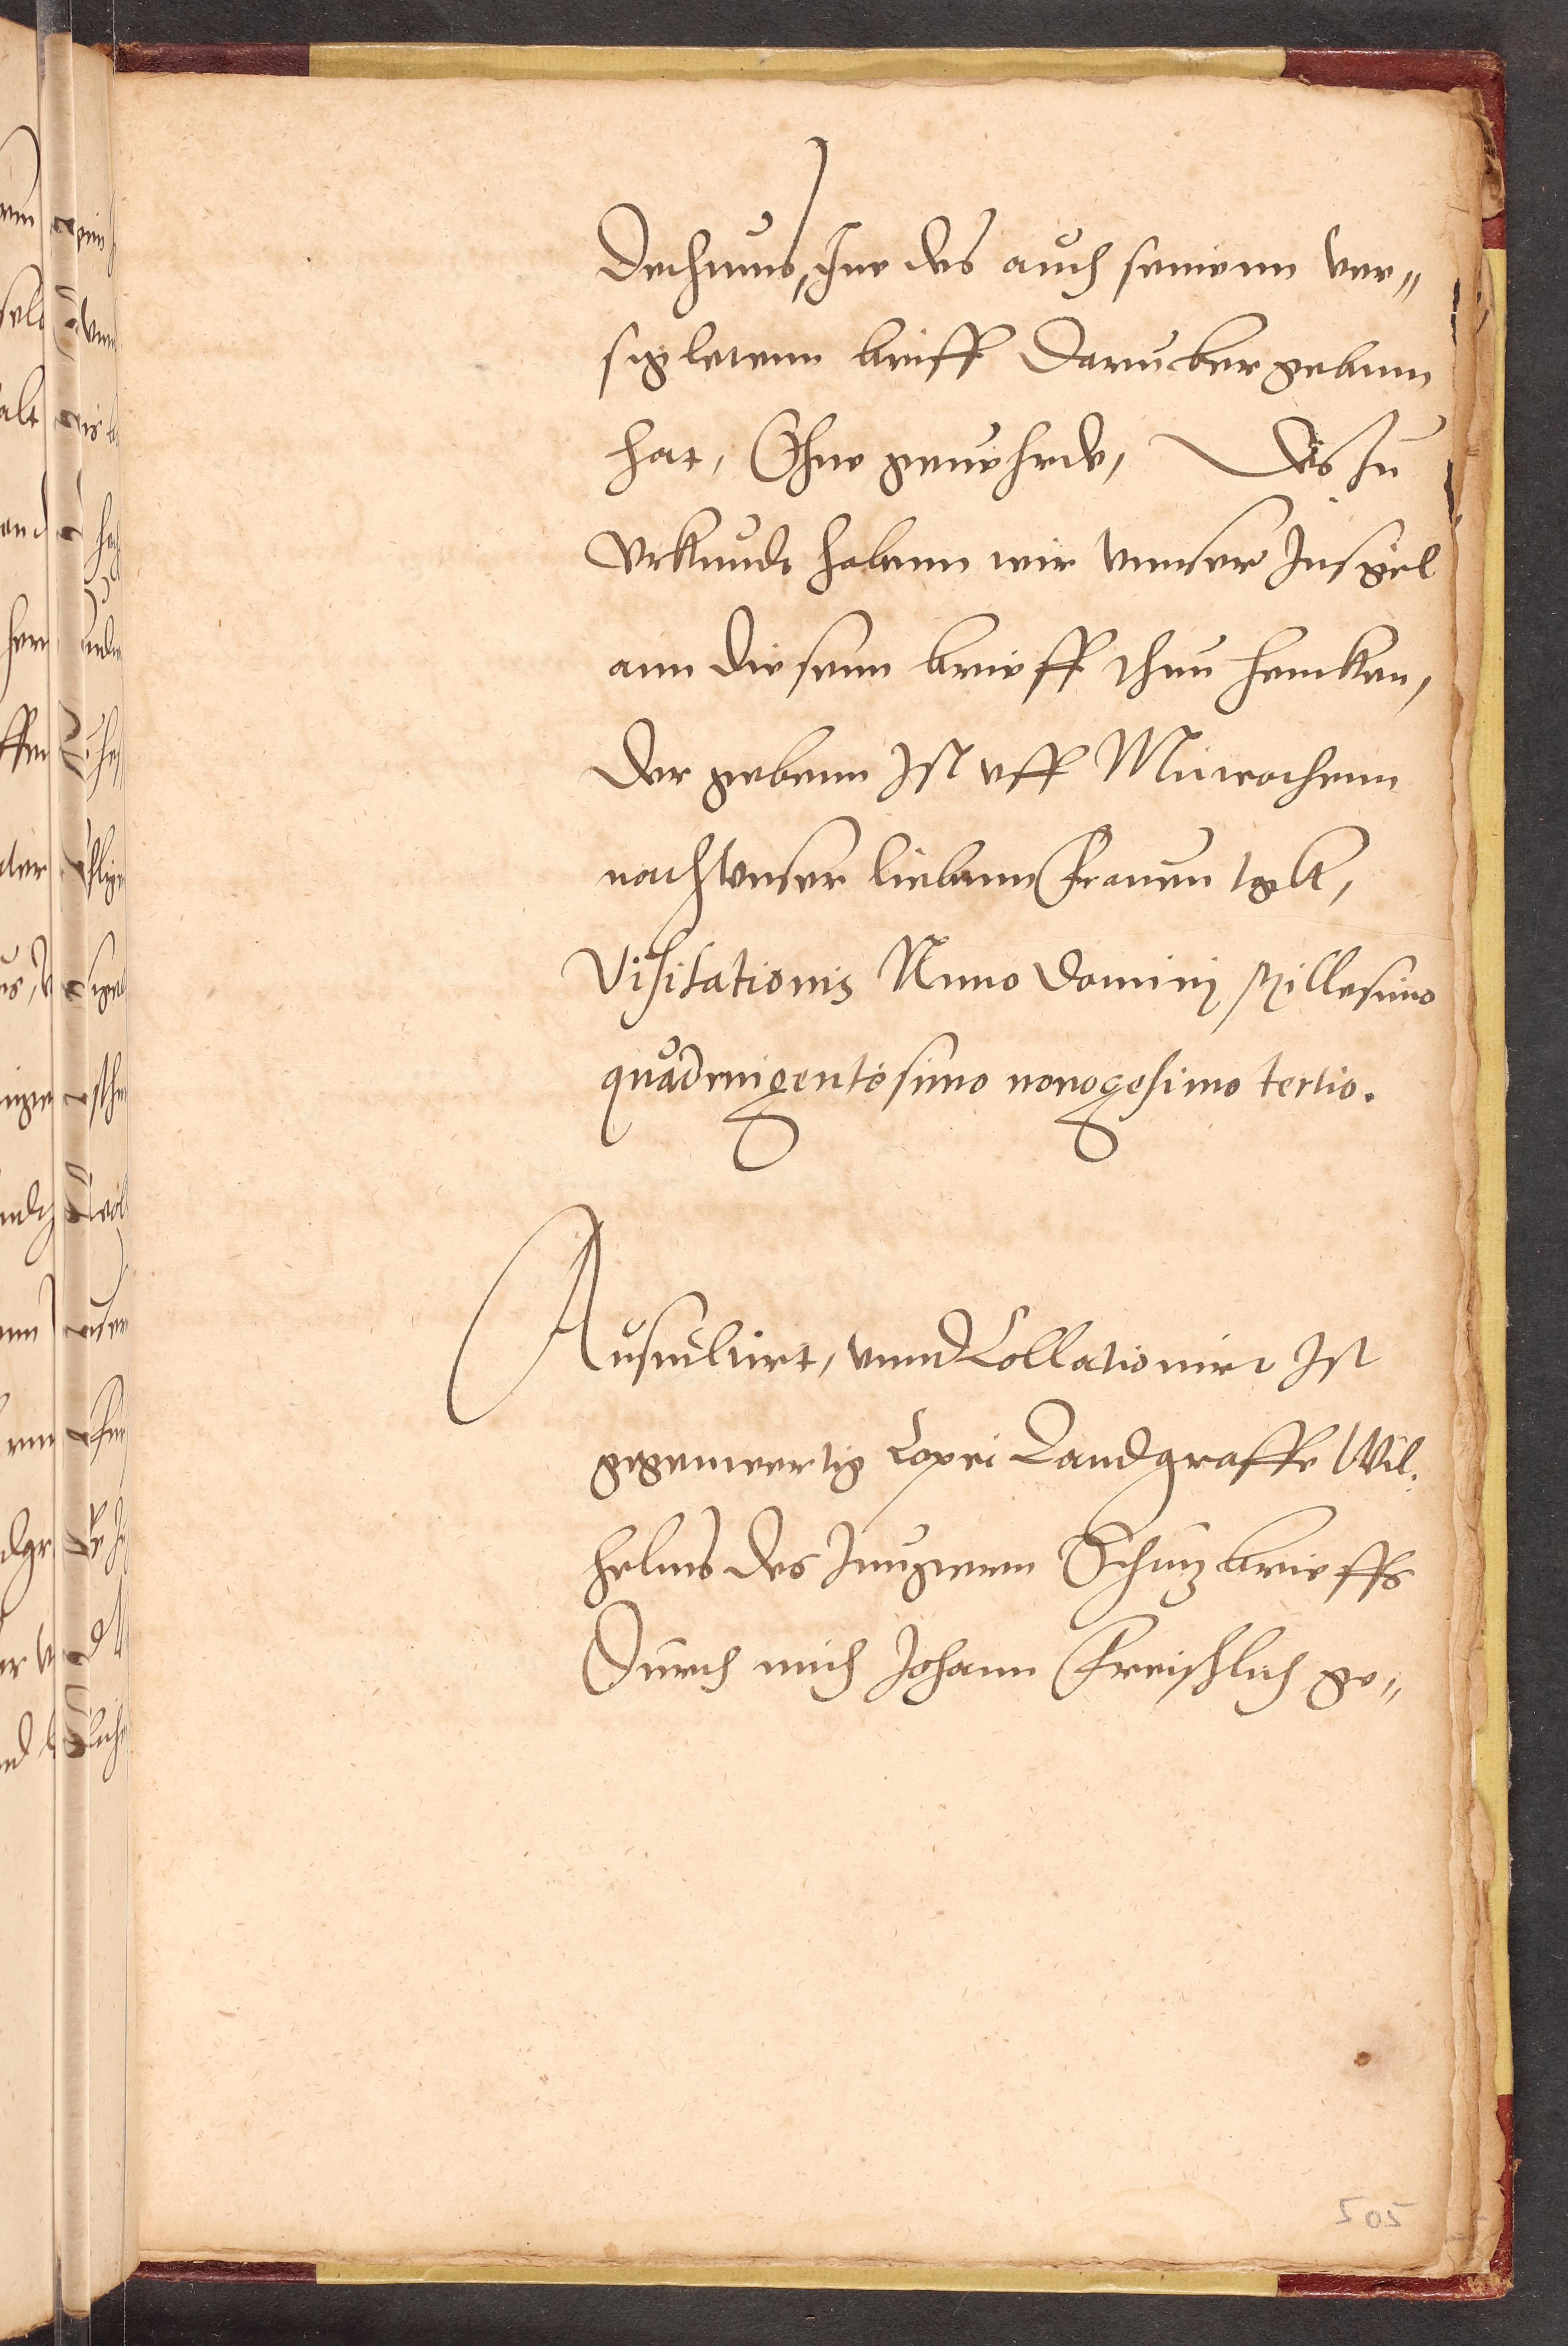 Dechnus, Ine des auch seinenn ver„
sigletenn brieff Darueber gebenn
hat, Ohne geuehrde, Des zu
Vrkunde habenn wir vnnser Insigel
ann diesenn brieff thun hencken,
Der gebenn Ist vff Mitwochenn
nach vnser liebenn Frauen tgk,
Visitationis Anno Dominj Millesimo
quadringentesimo nonogesimo tertio.
Ausculiirt, vnnd Collationirt Ist
gegenwertig Copei Landgraffe Wil:
helms des Jungeren Schutzbrieffs
Durch mich Johann Freischlich ge„
505